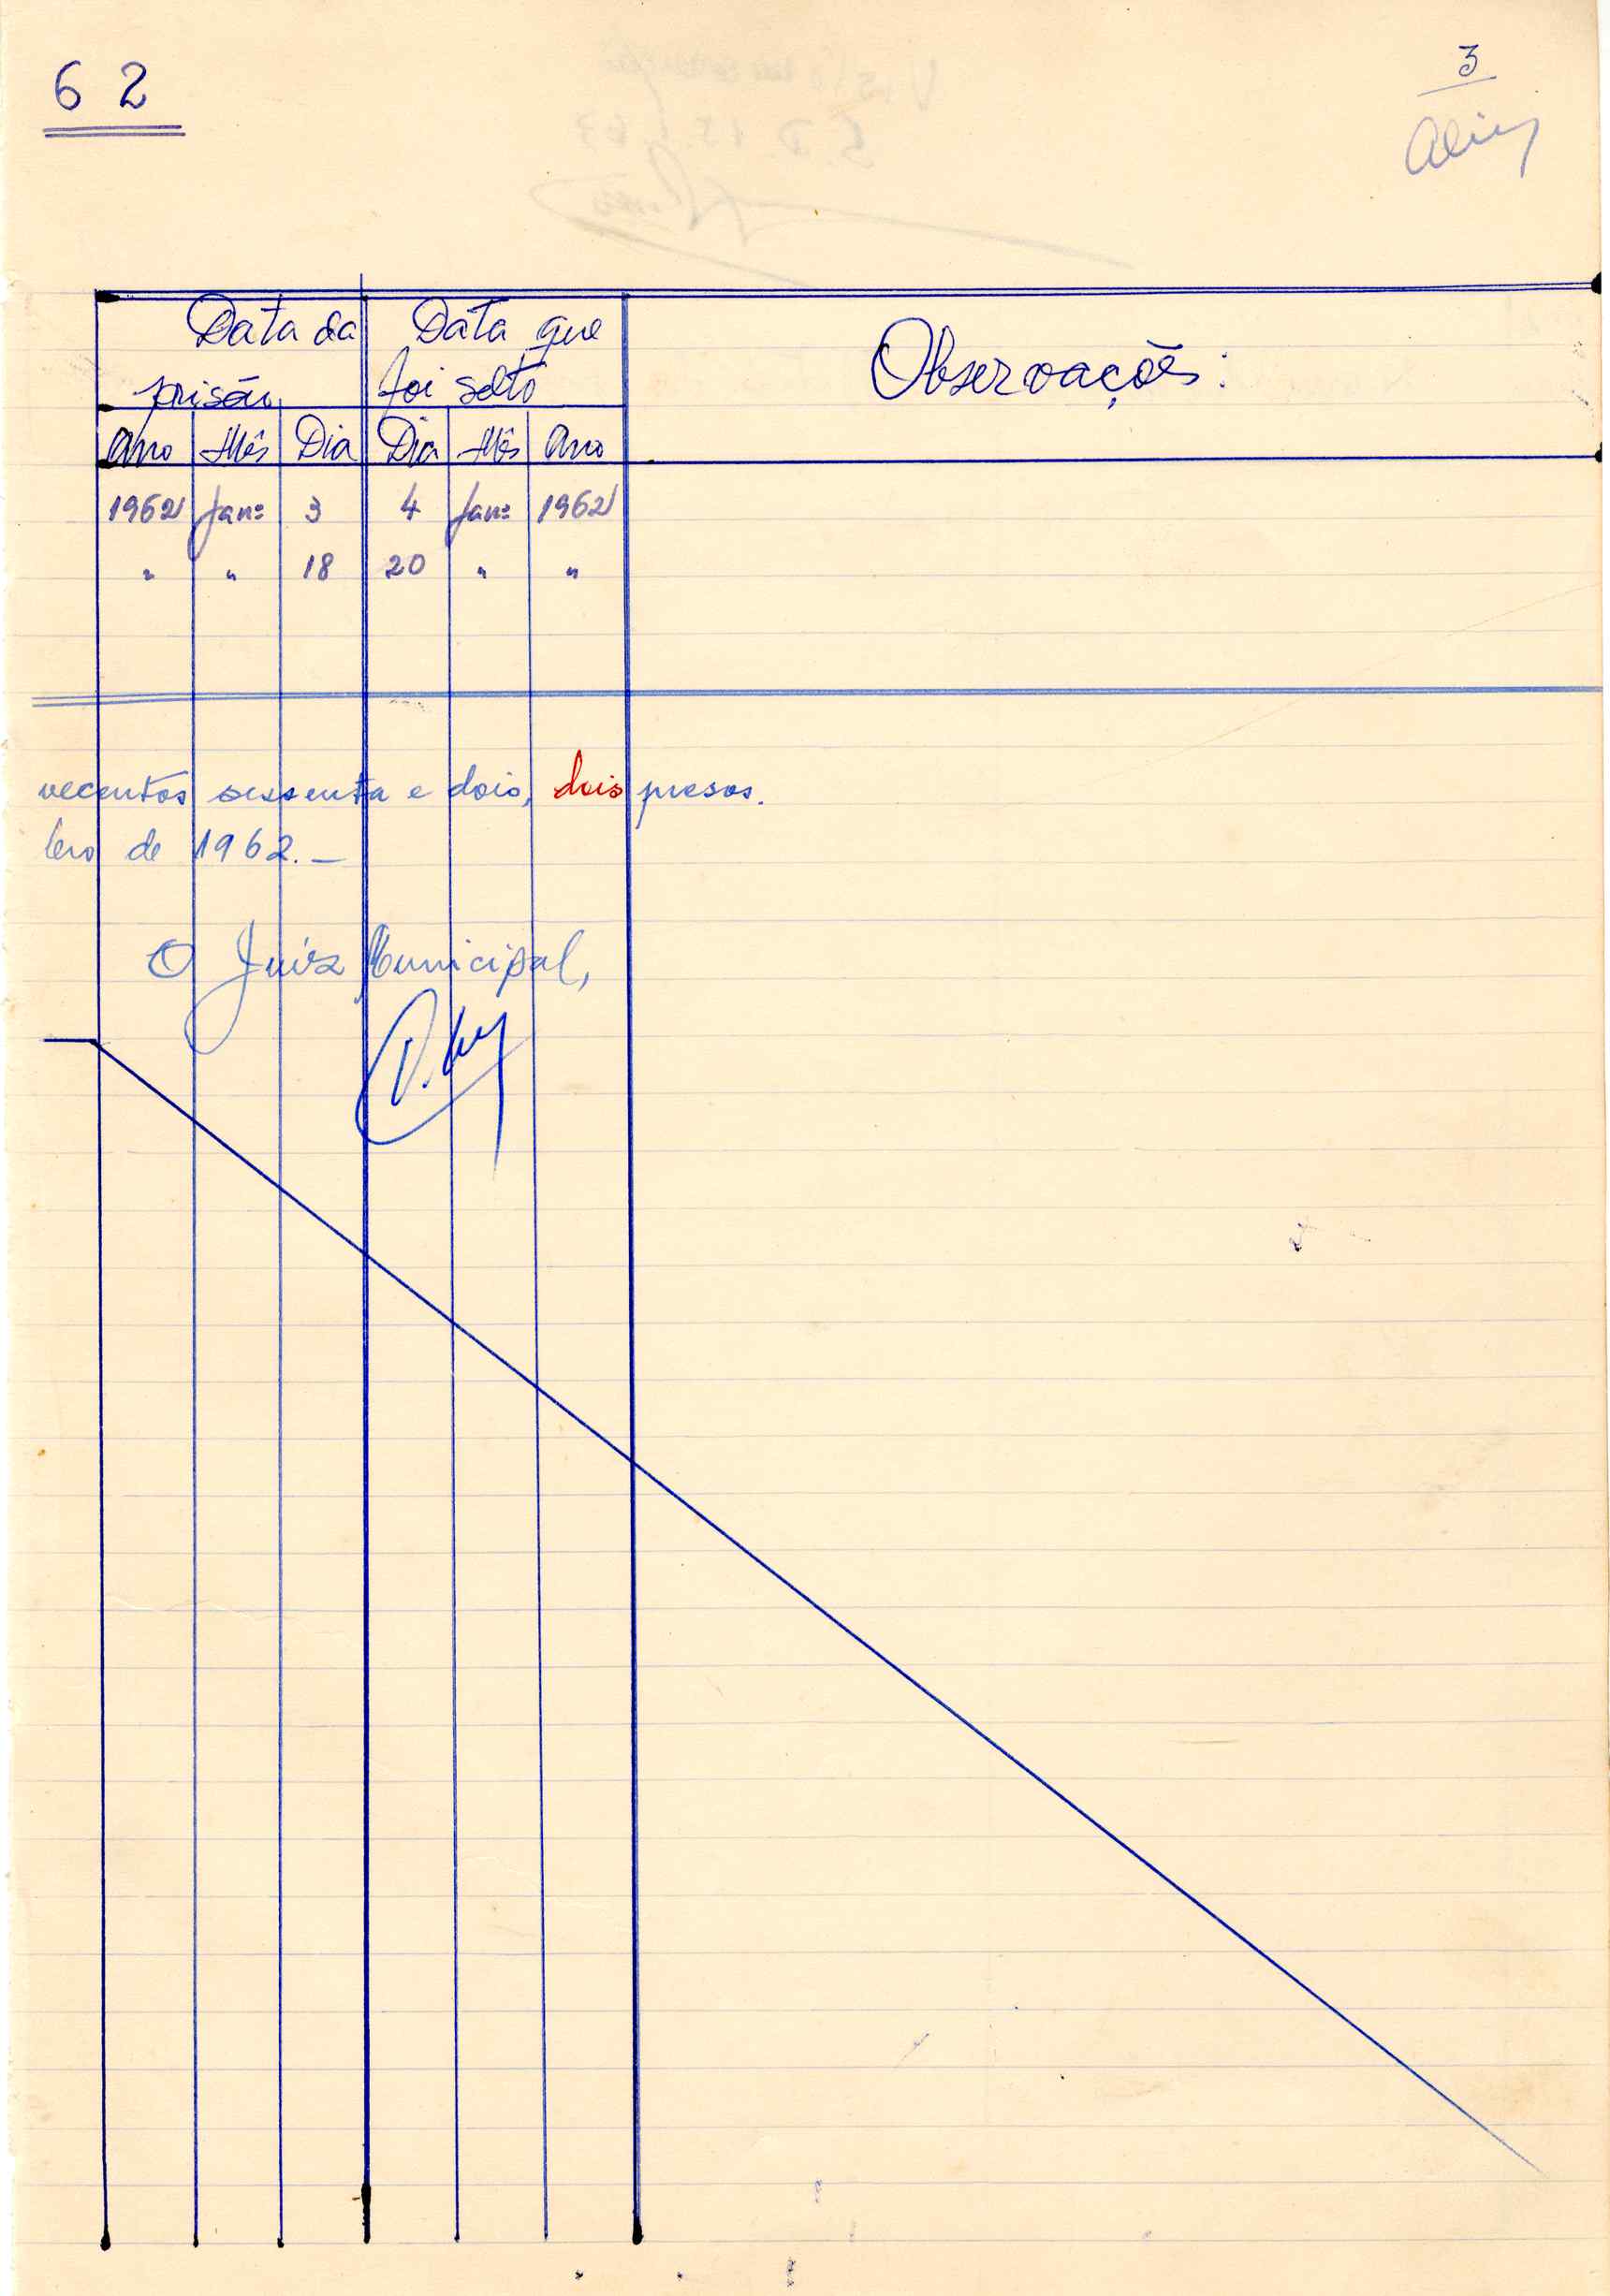 62
3
Data da Data que
prisão foi solto
Observações:
Ano Mês Dia Dia Mês Ano
1962 Janº 3 4 Janº 1962
" " 18 20 " "
vecentos sessenta e dois, dois presos.
leiro de 1962. —
O Juiz Municipal,